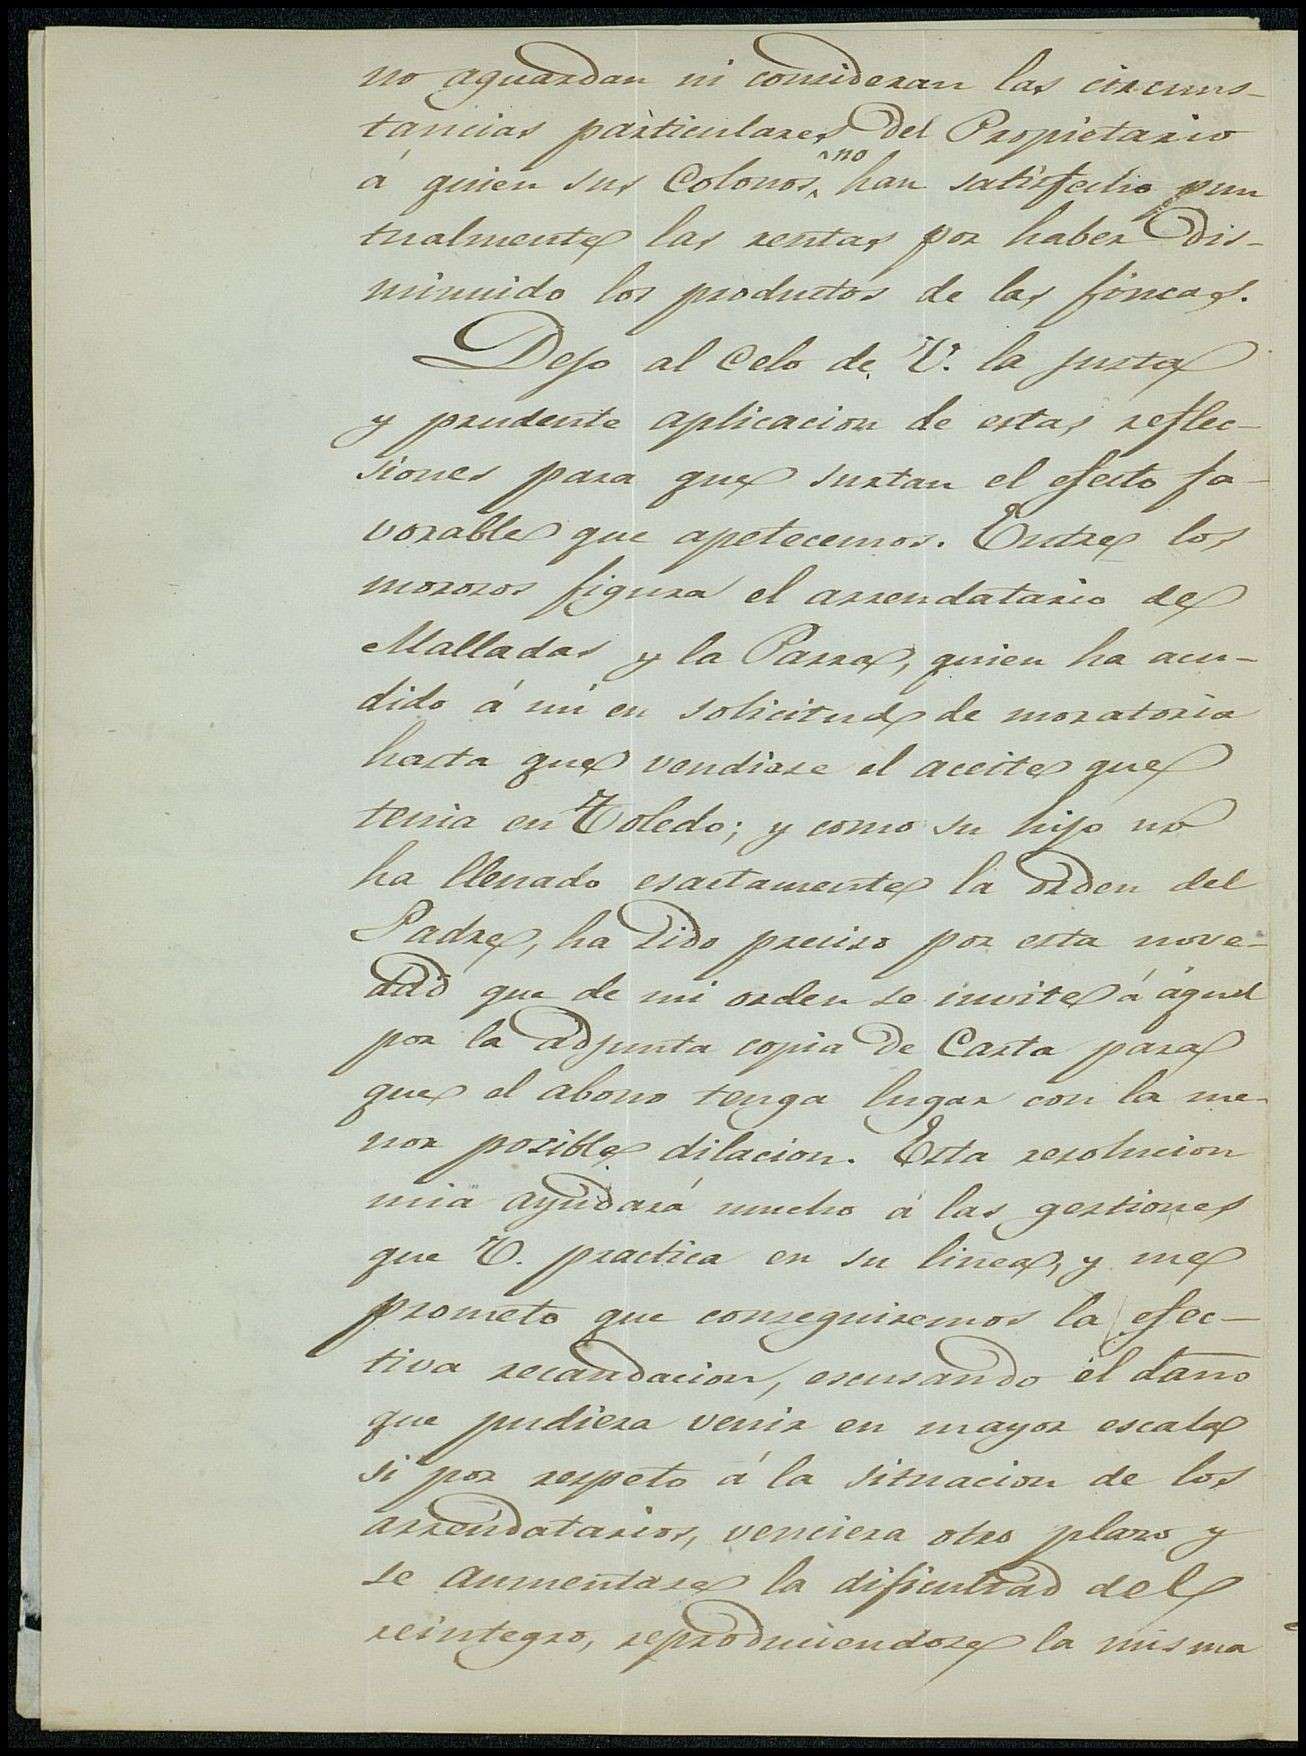 no aguardan ni consideran las circuns-
tancias particulares del Propietario
á quien sus Colonos no han satisfecho pun
tualmente las rentas por haber dis-
minuido los productos de las fincas.
Dejo al celo de V. la justa
y prudente aplicacion de estas reflec-
siones para que surtan el efecto fa-
vorable que apetecemos. Entre los
morosos figura el arrendatario de
Malladas y la Parra, quien ha acu-
dido á mi en solicitud de moratoria
hasta que vendiese el aceite que
tenia en Toledo; y como su hijo no
ha llenado esactamente la orden del
Padre, ha sido preciso por esta nove-
dad que de mi orden se invite á aquel
por la adjunta copia de Carta para
que el abono tenga lugar con la me-
nor posible dilacion. Esta resolucion
mia ayudará mucho á las gestiones
que V. practica en su linea, y me
prometo que conseguiremos la efec-
tiva recaudacion, escusando el daño
que pudiera venir en mayor escala
si por respeto á la situacion de los
arrendatarios, venciera otro plazo y
se aumentase la dificultad del
reintegro, reproduciendose la misma